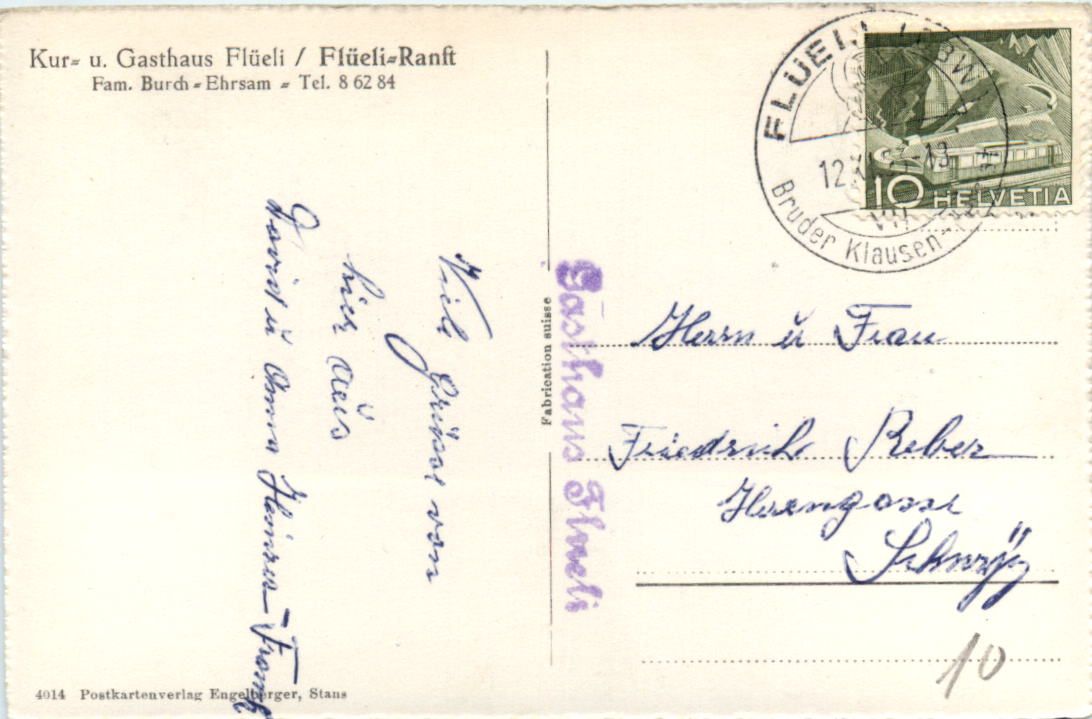 Kur- u. Gasthaus Flüeli / Flüeli-Ranft
Fam. Burch-Ehrsam - Tel. 8 62 84
Viele Grüsse von
hier aus
u Anna
Fabrication suisse
Gasthaus Flueli
FLÜELI
12.
-13
VIII
Bruder Klausen-
10 HELVETIA
Herrn u Frau
Friedrich Reber
Herrengasse
Schwÿz
10
4014 Postkartenverlag Engelberger, Stans